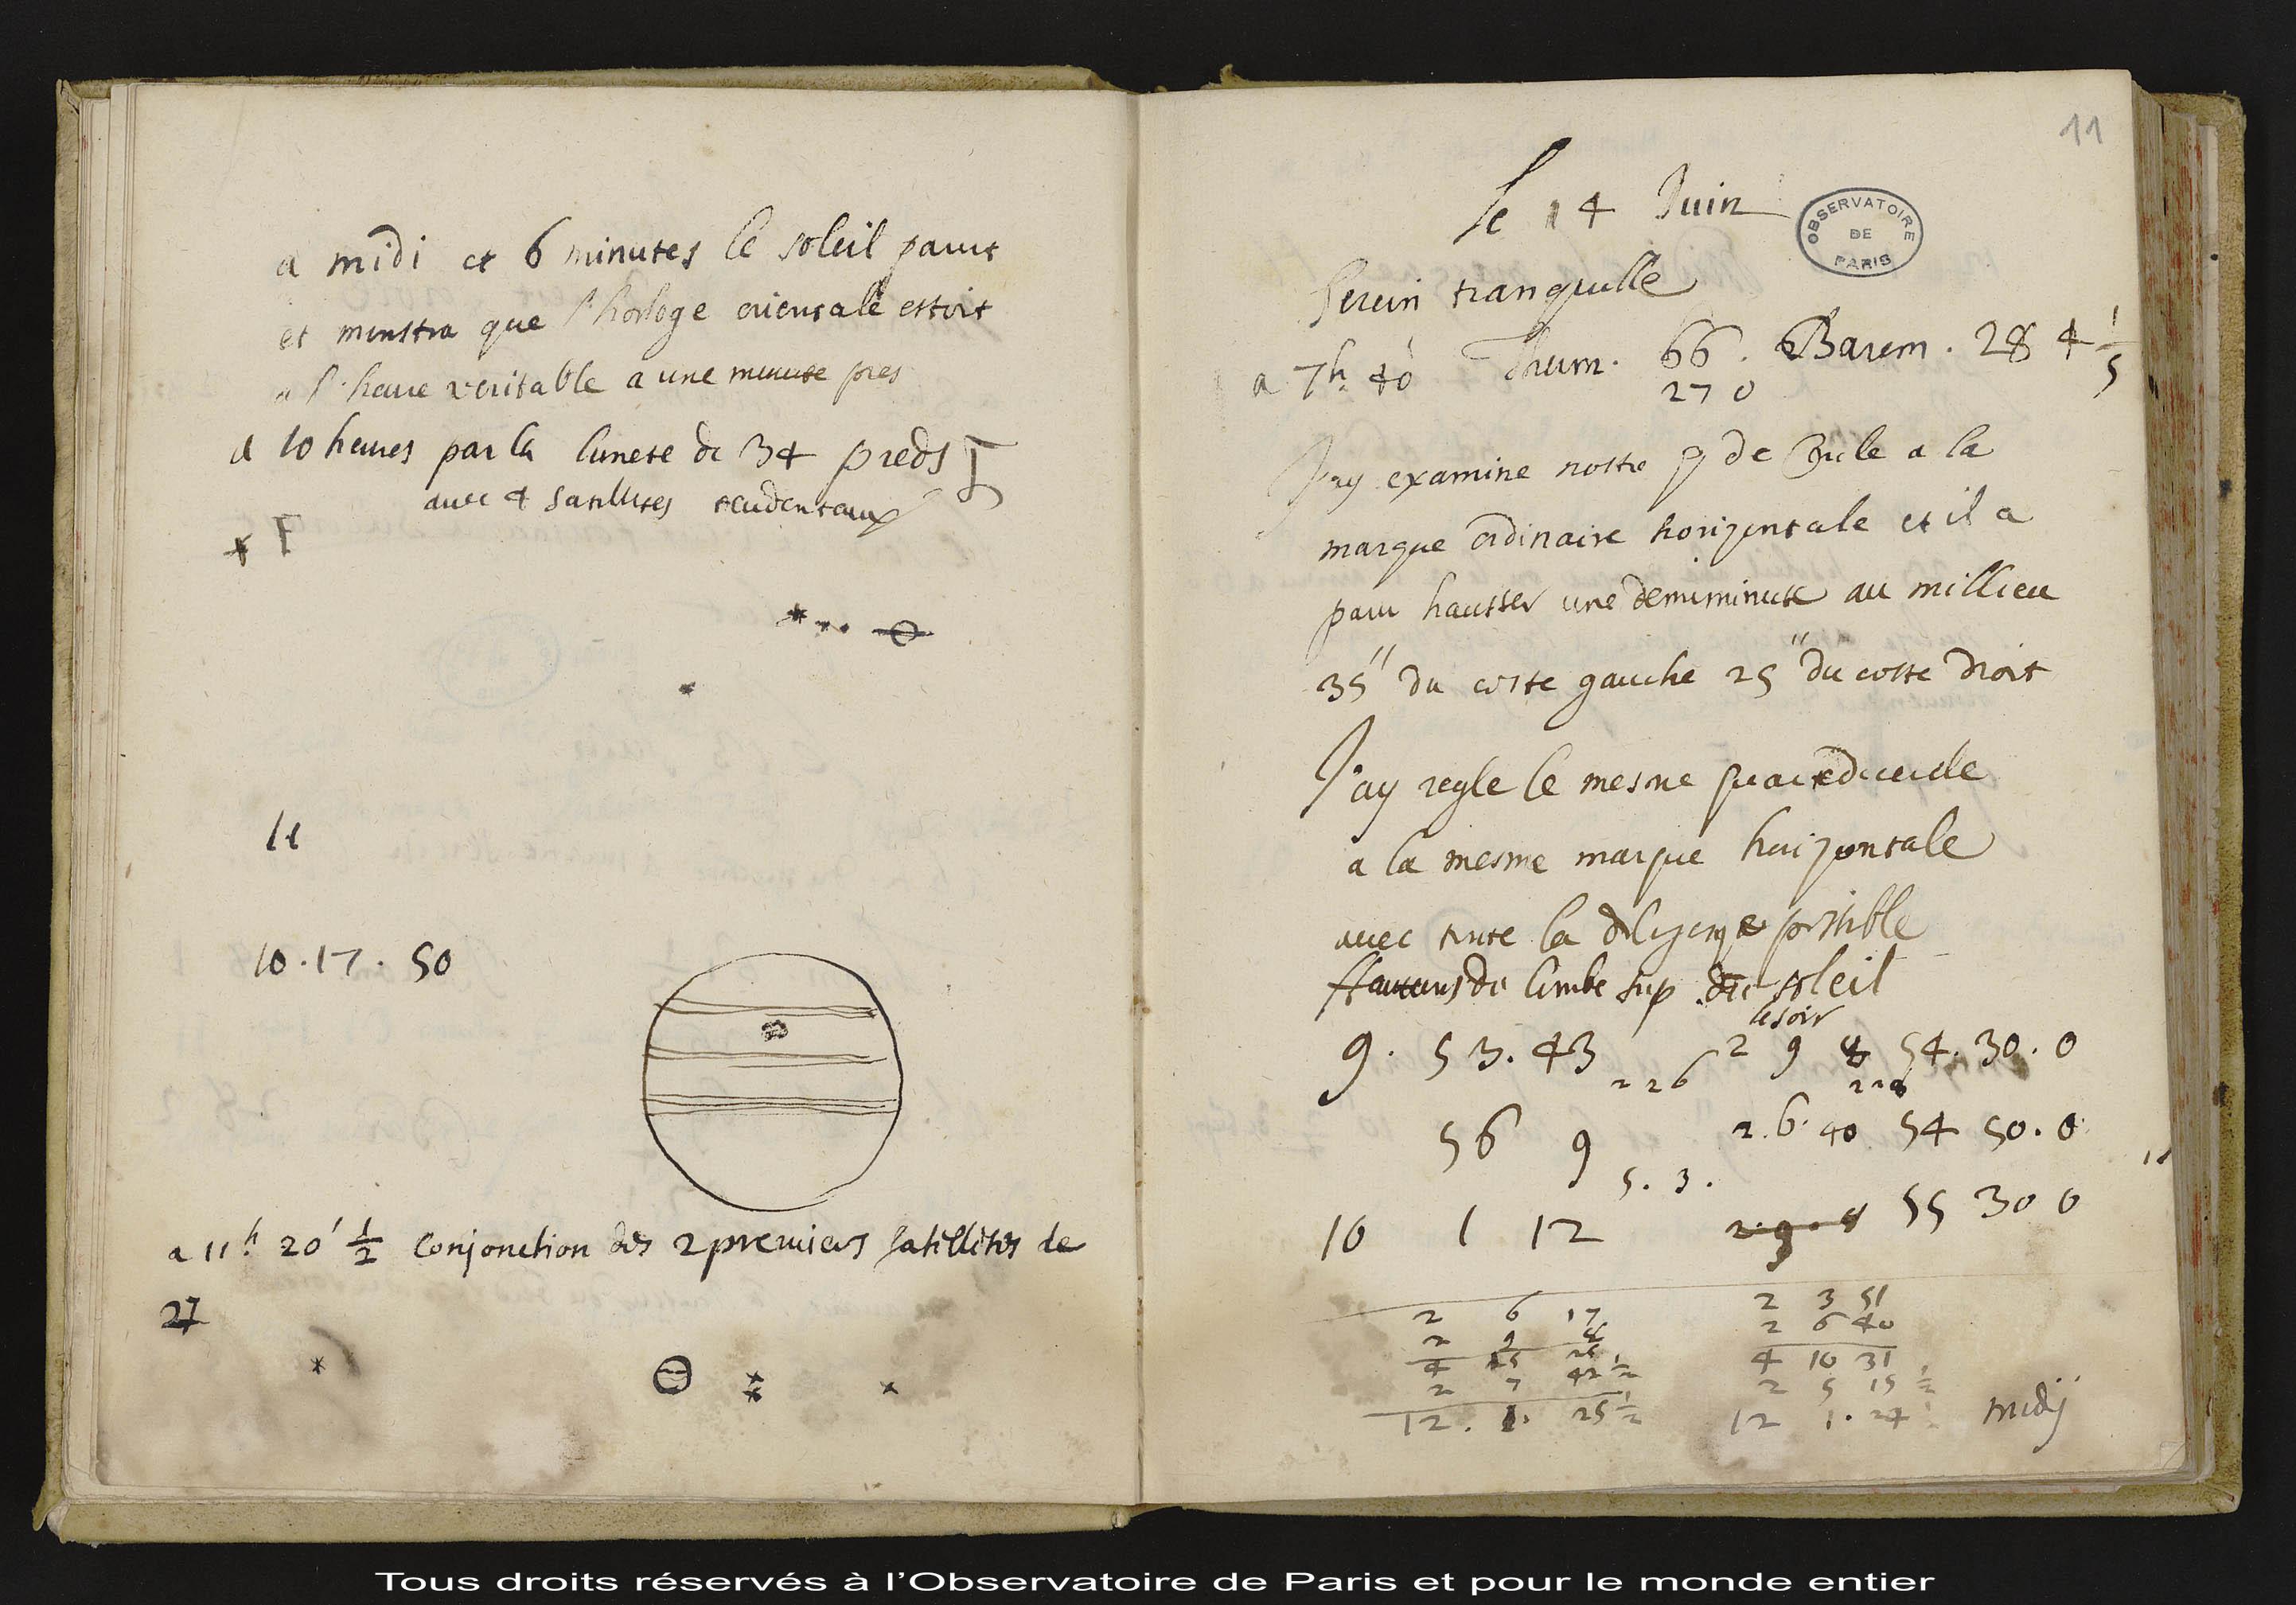 a midi et 6 minutes le soleil parut
et monstra que l'horloge orientale estoit
a l'heure veritable a une minute pres
a 10 heures par la lunete de 34 pieds
avec 4 satellites
10.17.50
a 11h 20' 1/2 Conjonction des 2 premiers satellites de
♃
11
le 14 Juin
OBSERVATOIRE DE PARIS
Serein tranquille
a 7h 40' Therm. 66. Barem. 28 4 1/5
270
J'ay examine nostre q de Cercle a la
marque ordinaire horizontale et il a
paru hausser une demiminute au millieu
35" du coste gauche 25" du coste droit
J'ay regle le mesme quart de cercle
a la mesme marque horizontale
avec toute la diligence possible
Hauteurs du limbe sup. du soleil
le soir
9. 53. 43 2 9 8 54. 30. 0
2 26
56 9 2. 6. 40 54 50. 0
5. 3.
10 1 12 55 30 0
2 6 17 2 3 51
2 9 8 2 6 40
4 15 25 4 10 31
2 7 42 1/2 2 5 15 1/2
12. 1. 25 1/2 12 1. 24 midj
Tous droits réservés à l'Observatoire de Paris et pour le monde entier